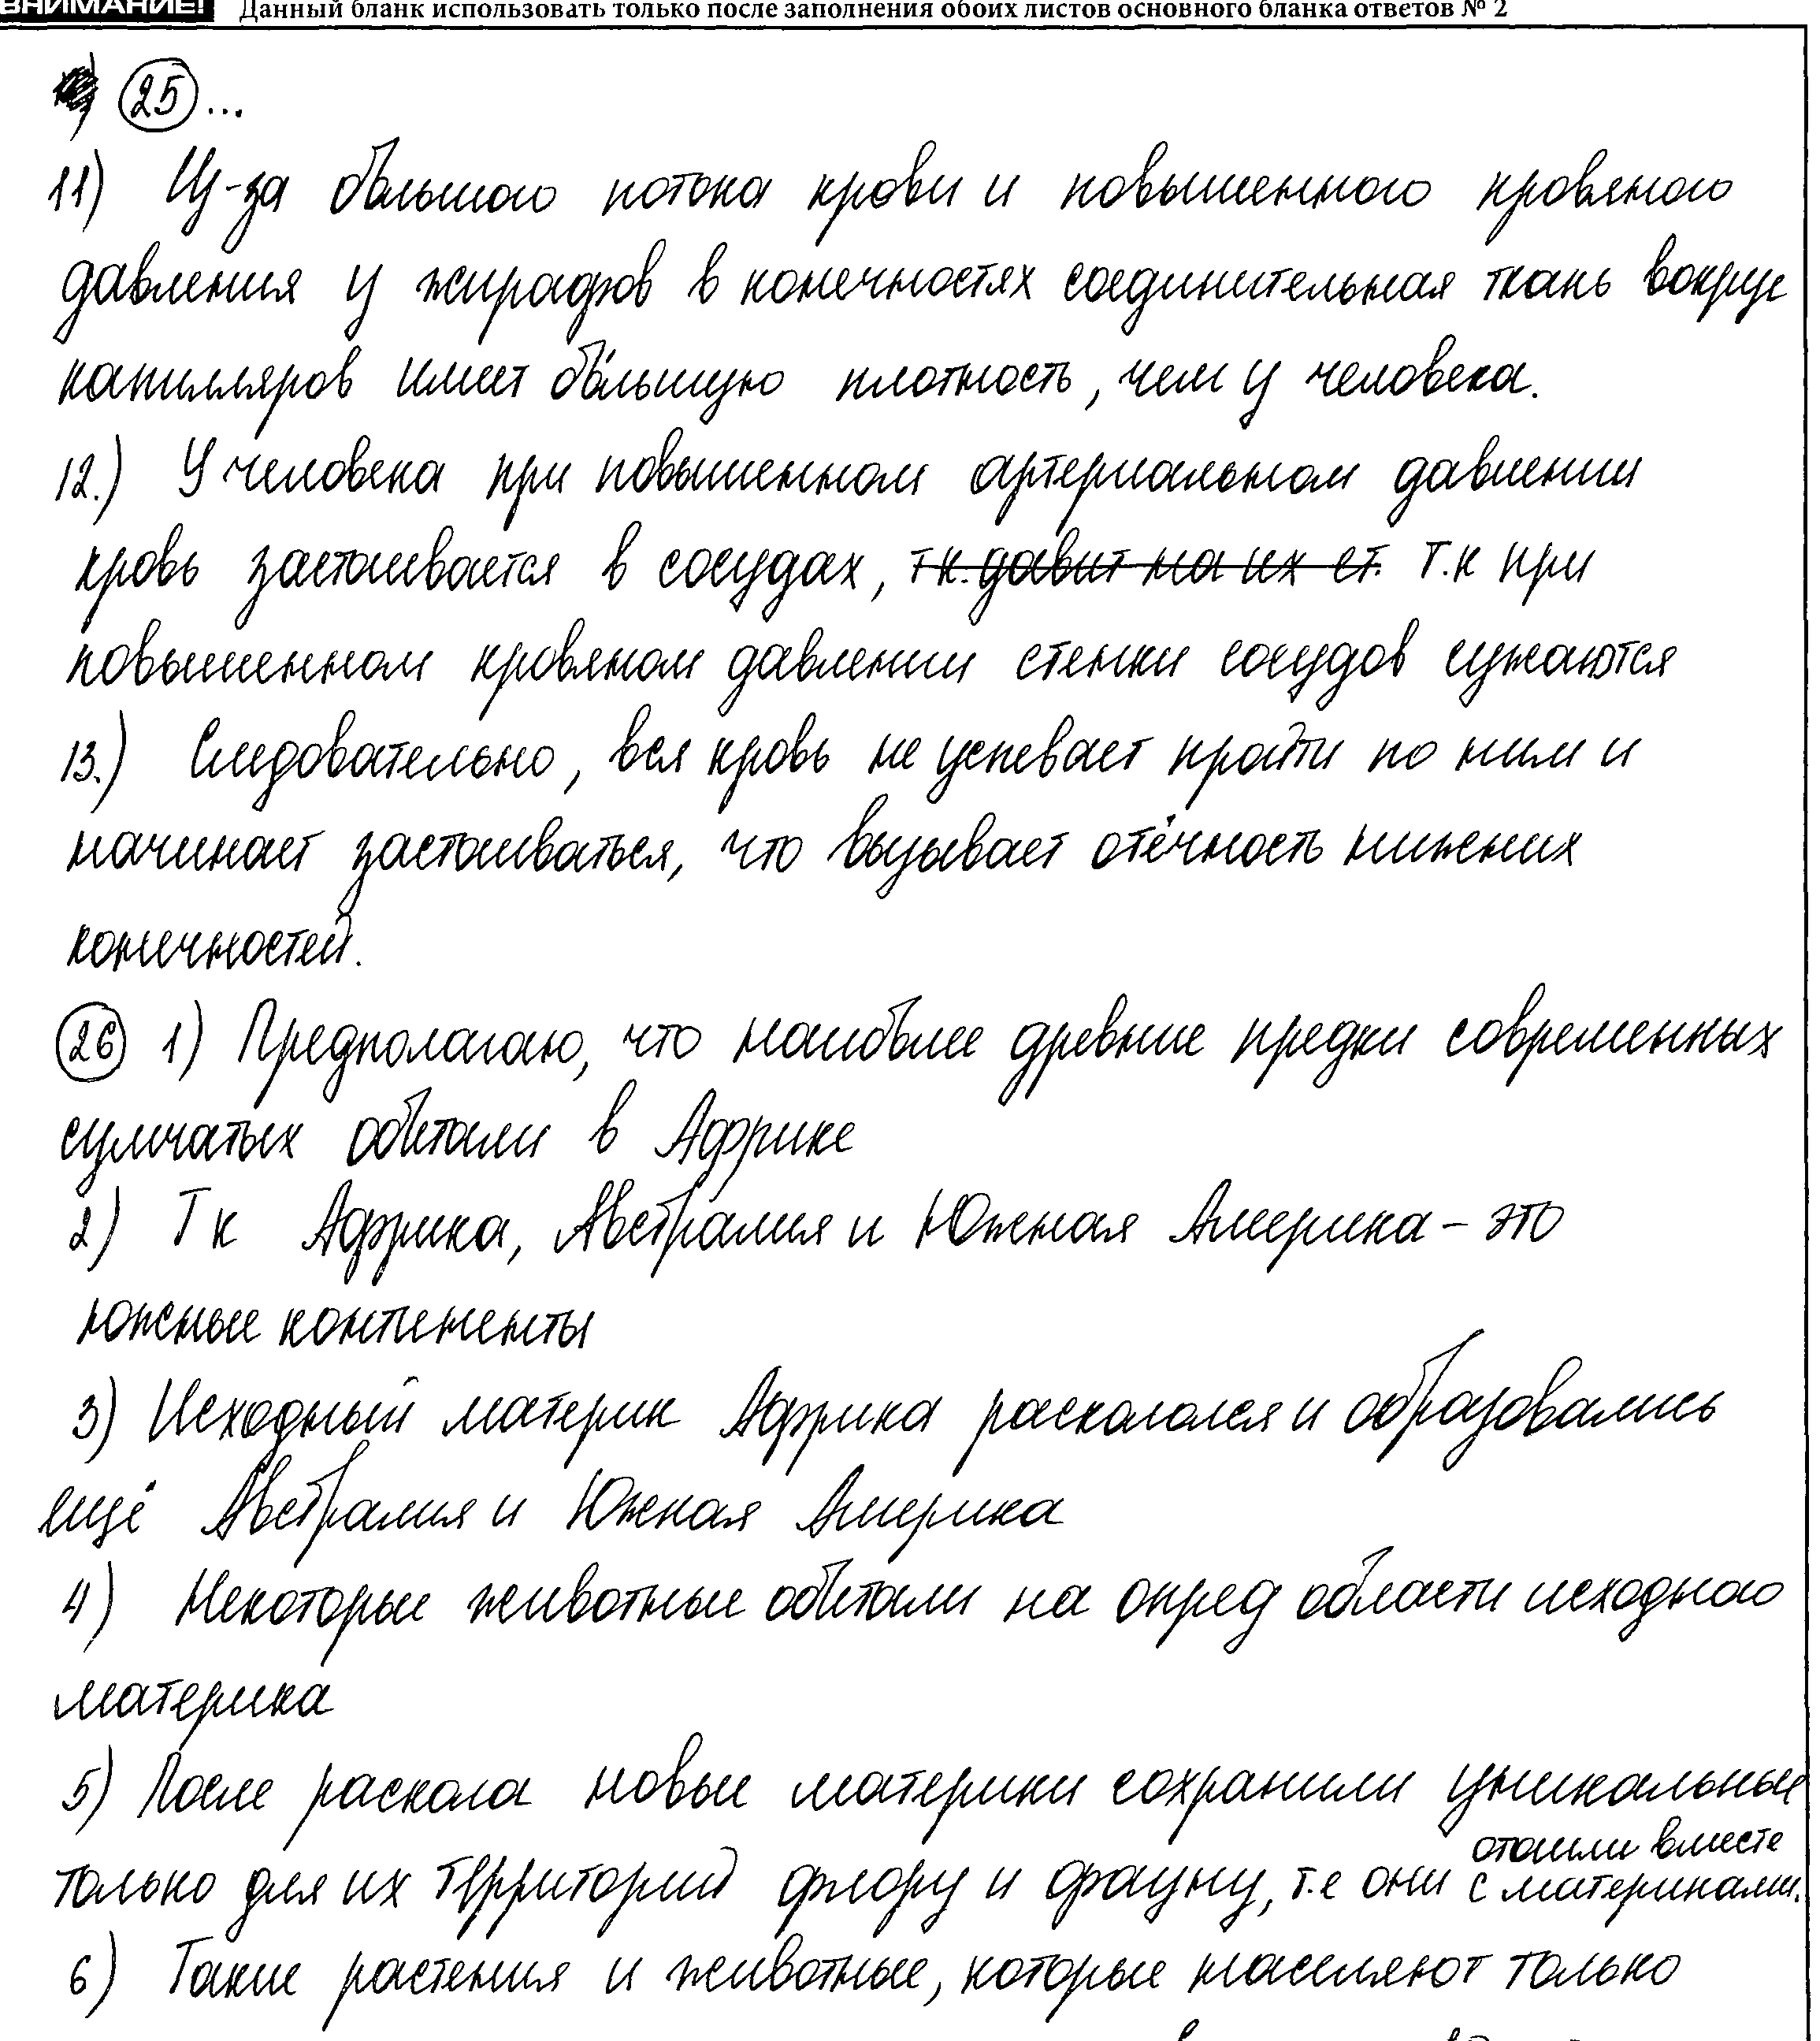 ВНИМАНИЕ! Данный бланк использовать только после заполнения обоих листов основного бланка ответов № 2
25 ...
11) Из-за большого потока крови и повышенного кровяного
давления у жирафов в конечностях соединительная ткань вокруг
капилляров имеет бо́льшую плотность, чем у человека.
12.) У человека при повышенном артериальном давлении
кровь застаивается в сосудах, т к. давит на их ст. т.к при
повышенном кровяном давлении стенки сосудов сужаются
13.) Следовательно, вся кровь не успевает пройти по ним и
начинает застаиваться, что вызывает отёчность нижних
конечностей.
26 1) Предполагаю, что наиболее древние предки современных
сумчатых обитали в Африке
2) Т к Африка, Австралия и Южная Америка - это
южные континенты
3) Исходный материк Африка раскололся и образовались
ещё Австралия и Южная Америка
4) Некоторые животные обитали на опред области исходного
материка
5) После раскола новые материки сохранили уникальные
только для их территорий флору и фауну, т.е они отошли вместе
с материками.
6) Такие растения и животные, которые населяют только